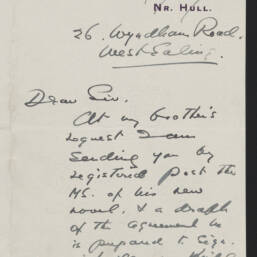 Nr. Hull.
26. Wyndham Road.
West Ealing.
Dear Sir.
At my brother's
request I am
sending you by
registered post the
MS. of his new
novel, & a draft
of the agreement he
is prepared to sign.